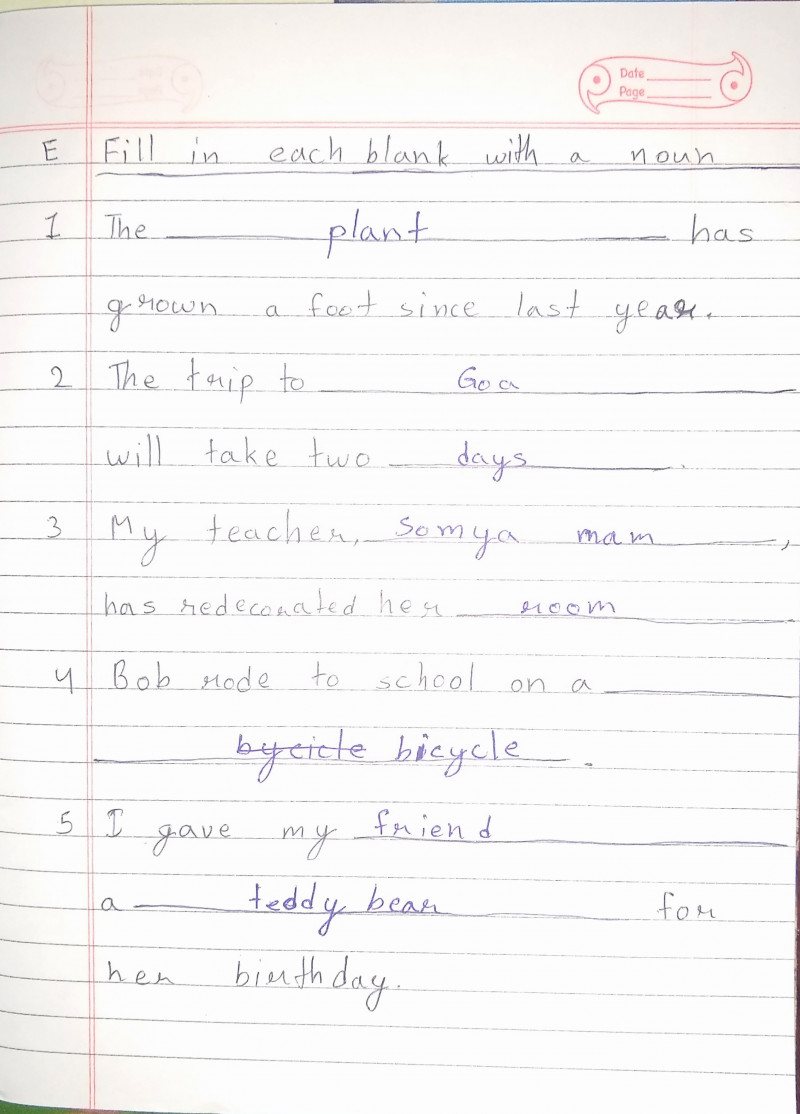 Date
Page
E Fill in each blank with a noun
1 The plant has
grown a foot since last year.
2 The trip to Goa
will take two days.
3 My teacher, Somya mam,
has redecorated her room
4 Bob rode to school on a
bycicle bicycle.
5 I gave my friend
a teddy bear for
her birthday.